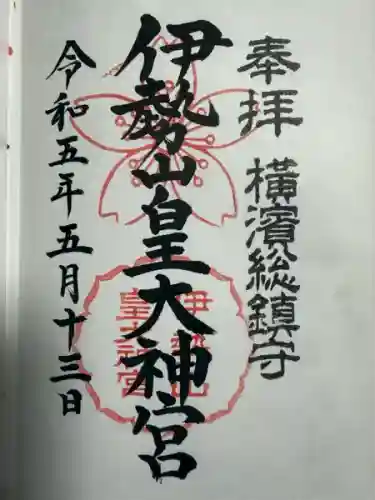 奉拝
横濱総鎮守
伊勢山皇大神宮
伊勢山
皇大神宮
令和五年五月十三日